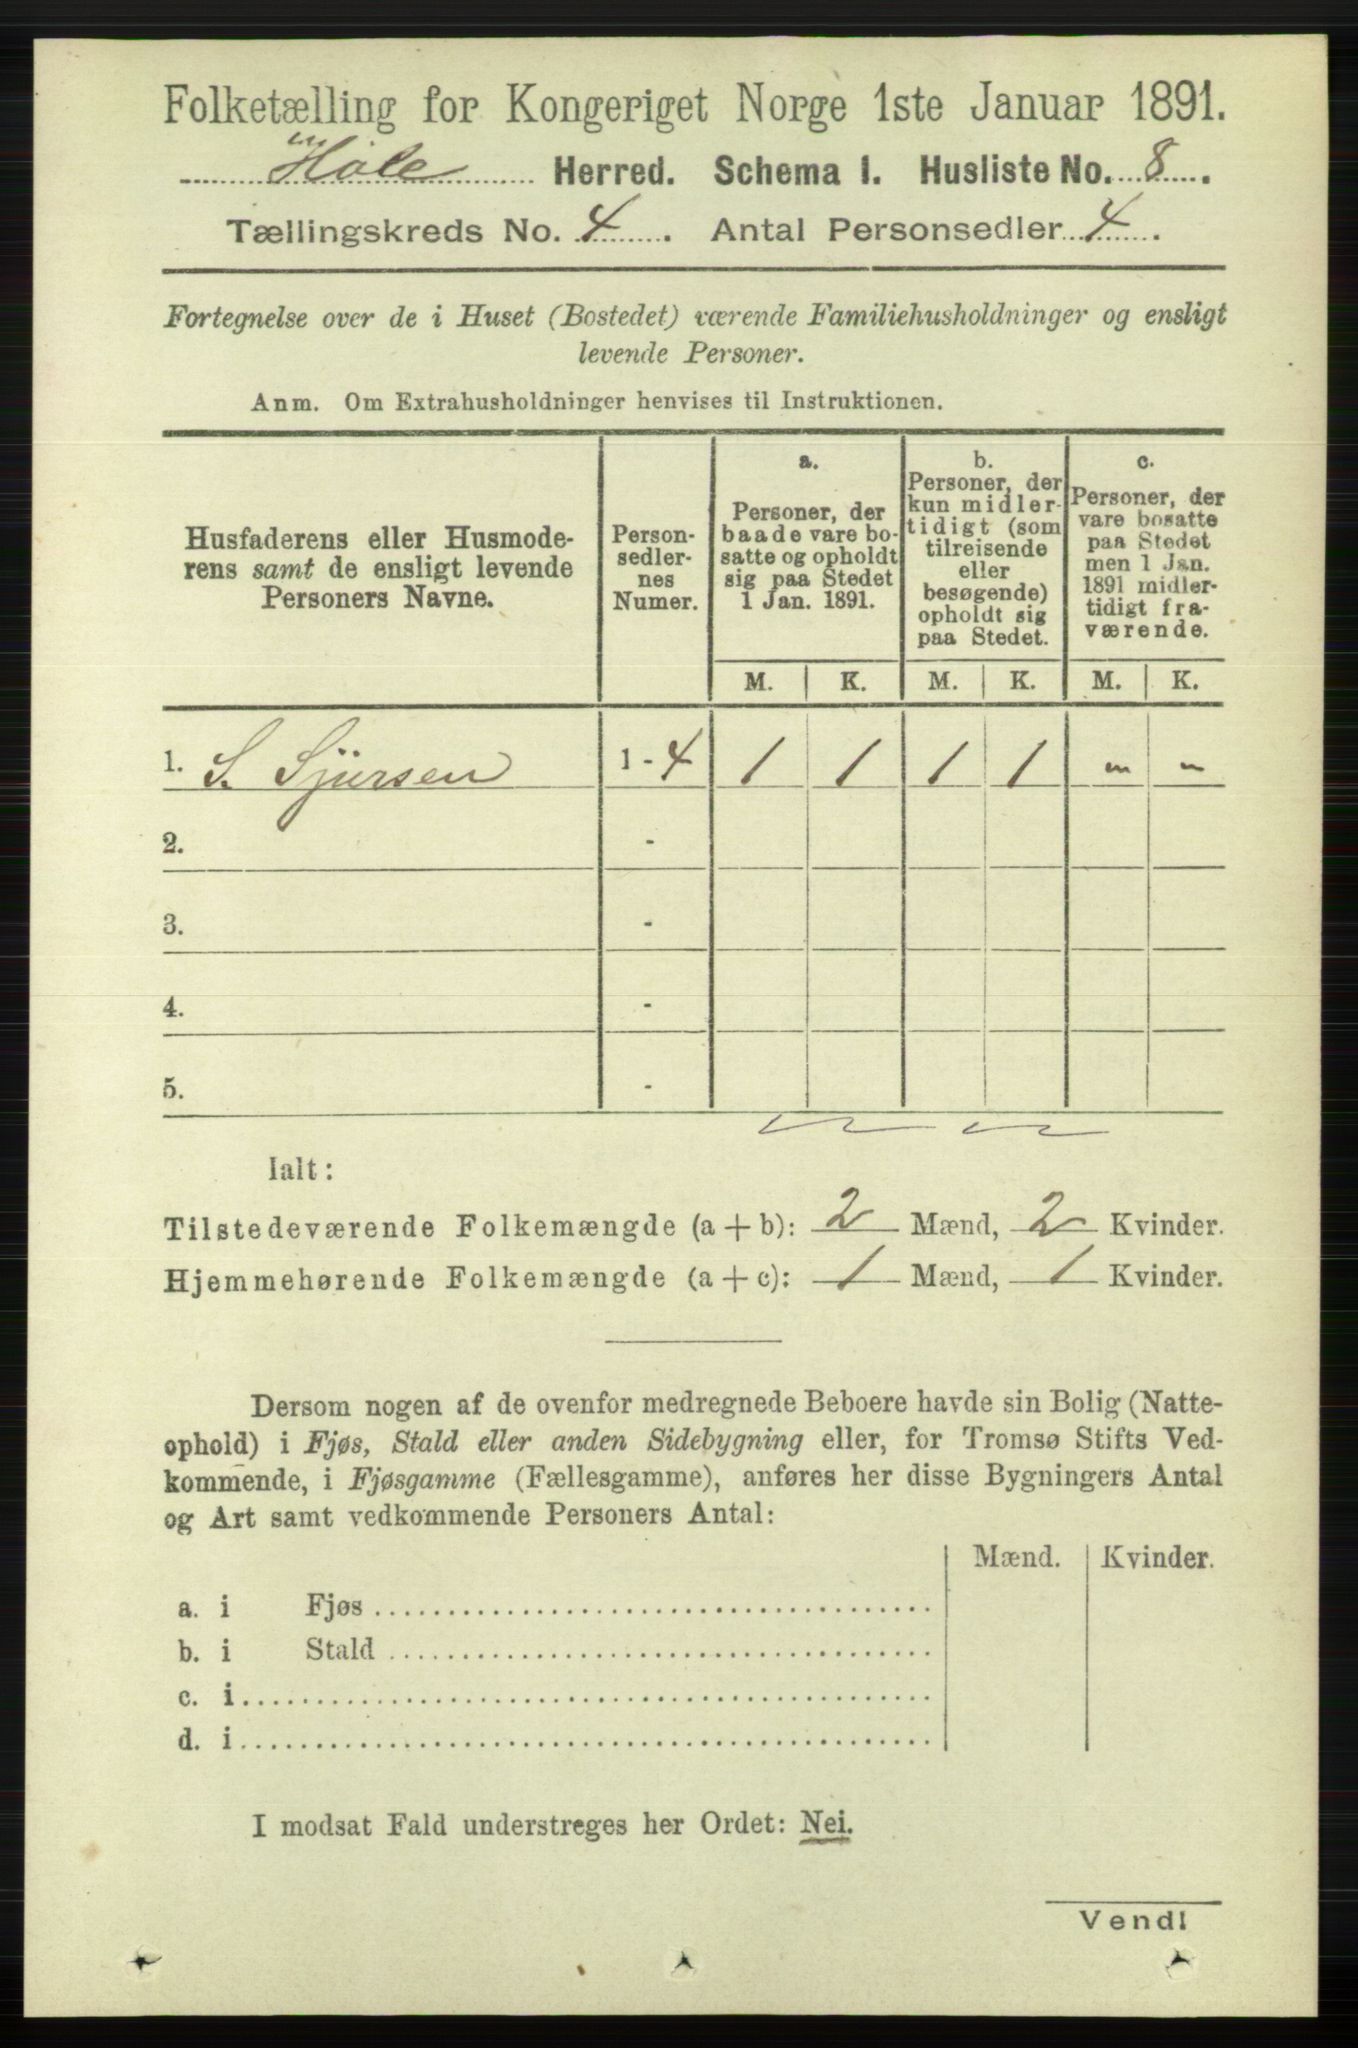 Folketælling for Kongeriget Norge 1ste Januar 1891.
Høle Herred. Schema 1. Husliste No. 8.
Tællingskreds No. 4. Antal Personsedler 4.
Fortegnelse over de i Huset (Bostedet) værende Familiehusholdninger og ensligt
levende Personer.
Anm. Om Extrahusholdninger henvises til Instruktionen.
Husfaderens eller Husmode-
rens samt de ensligt levende
Personers Navne.
Person-
sedler-
nes
Numer.
a.
Personer, der
baade vare bo-
satte og opholdt
sig paa Stedet
1 Jan. 1891.
b.
Personer, der
kun midler-
tidigt (som
tilreisende
eller
besøgende)
opholdt sig
paa Stedet.
c.
Personer, der
vare bosatte
paa Stedet
men 1 Jan.
1891 midler-
tidigt fra-
værende.
M. K. M. K. M. K.
1. S. Sjursen 1 - 4 1 1 1 1 " "
2. -
3. -
4. -
5. -
Ialt:
Tilstedeværende Folkemængde (a + b): 2 Mænd, 2 Kvinder.
Hjemmehørende Folkemængde (a + c): 1 Mænd, 1 Kvinder.
Dersom nogen af de ovenfor medregnede Beboere havde sin Bolig (Natte-
ophold) i Fjøs, Stald eller anden Sidebygning eller, for Tromsø Stifts Ved-
kommende, i Fjøsgamme (Fællesgamme), anføres her disse Bygningers Antal
og Art samt vedkommende Personers Antal:
Mænd. Kvinder.
a. i Fjøs
b. i Stald
c. i
d. i
I modsat Fald understreges her Ordet: Nei.
Vend!